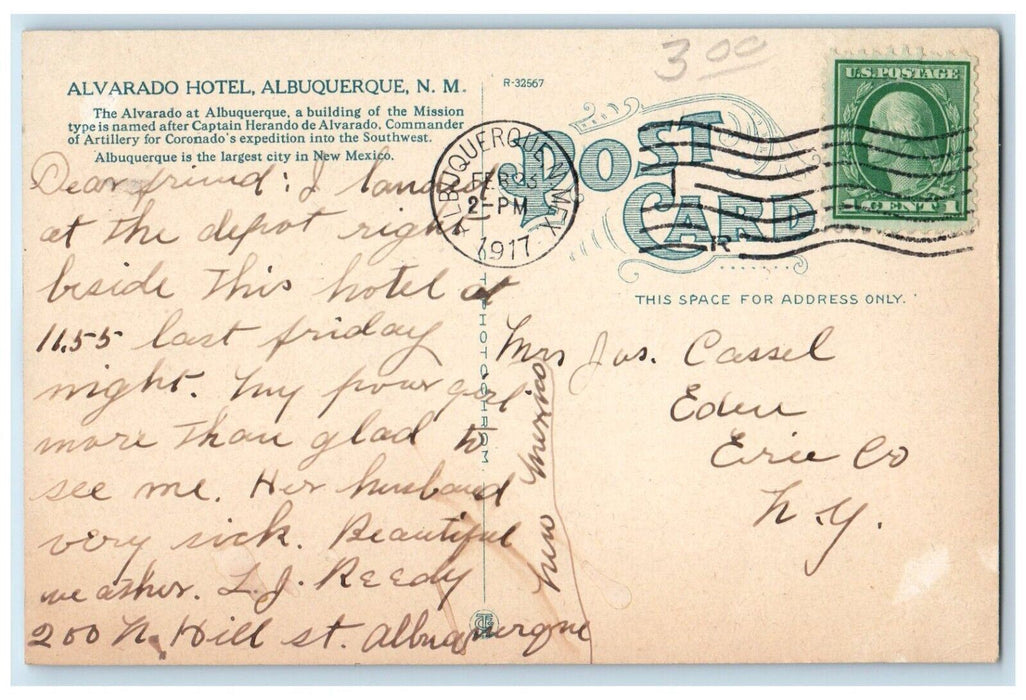 3 00
ALVARADO HOTEL, ALBUQUERQUE, N. M.
The Alvarado at Albuquerque, a building of the Mission
type is named after Captain Herando de Alvarado, Commander
of Artillery for Coronado's expedition into the Southwest.
Albuquerque is the largest city in New Mexico.
R-32567
POST
CARD
U.S. POSTAGE
1 CENT 1
ALBUQUERQUE N. MEX.
FEB 25
2-PM
1917
R
THIS SPACE FOR ADDRESS ONLY.
Dear friend: I landed
at the depot right
beside this hotel at
11.55 last friday
night. My poor girl
more than glad to
see me. Her husband
very sick. Beautiful
weather. L.J. Reedy
200 N. Hill st. Albuquerque
New Mexico
PHOTOCHROM
Mrs Jas. Cassel
Eden
Erie Co
N.Y.